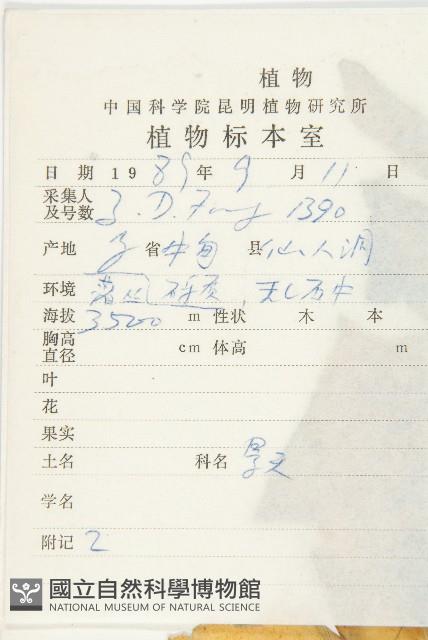 植物
中国科学院昆明植物研究所
植物标本室
日期 1989年9月11日
采集人及号数 Z. D. Fang 1390
产地 省中甸县仙人洞
环境
海拔 3500 m 性状 木 本
胸高直径 cm 体高 m
叶
花
果实
土名 科名 景天
学名
附记 2
國立自然科學博物館
NATIONAL MUSEUM OF NATURAL SCIENCE